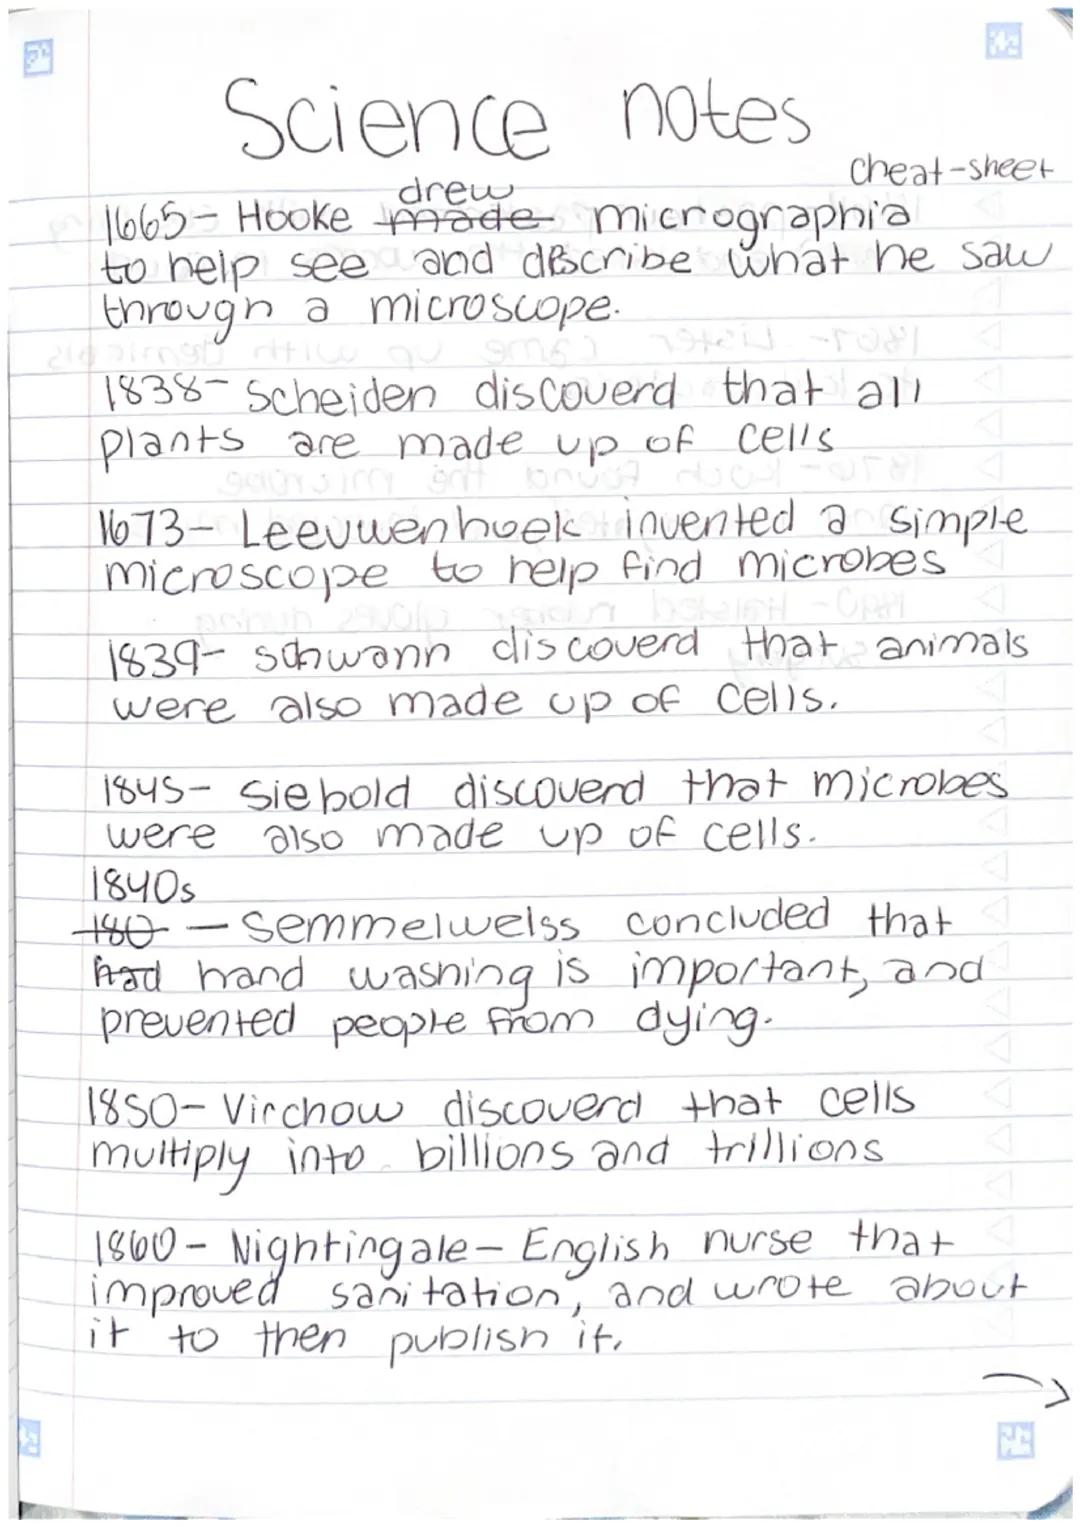 Science notes
cheat-sheet
drew
1665- Hooke made micrographia
to help see and describe what he saw
through a microscope.
1838- Scheiden discouerd that all
plants are made up of cells
1673- Leeuwenhoek invented a simple
microscope to help find microbes
1839- schwann discouerd that animals
were also made up of cells.
1845- siebold discouerd that microbes
were also made up of cells.
1840s
180 - Semmelwelss concluded that
had hand washing is important, and
prevented people from dying.
1850- Virchow discouerd that cells
multiply into billions and trillions
1860- Nightingale- English nurse that
improved sanitation, and wrote about
it to then publish it.